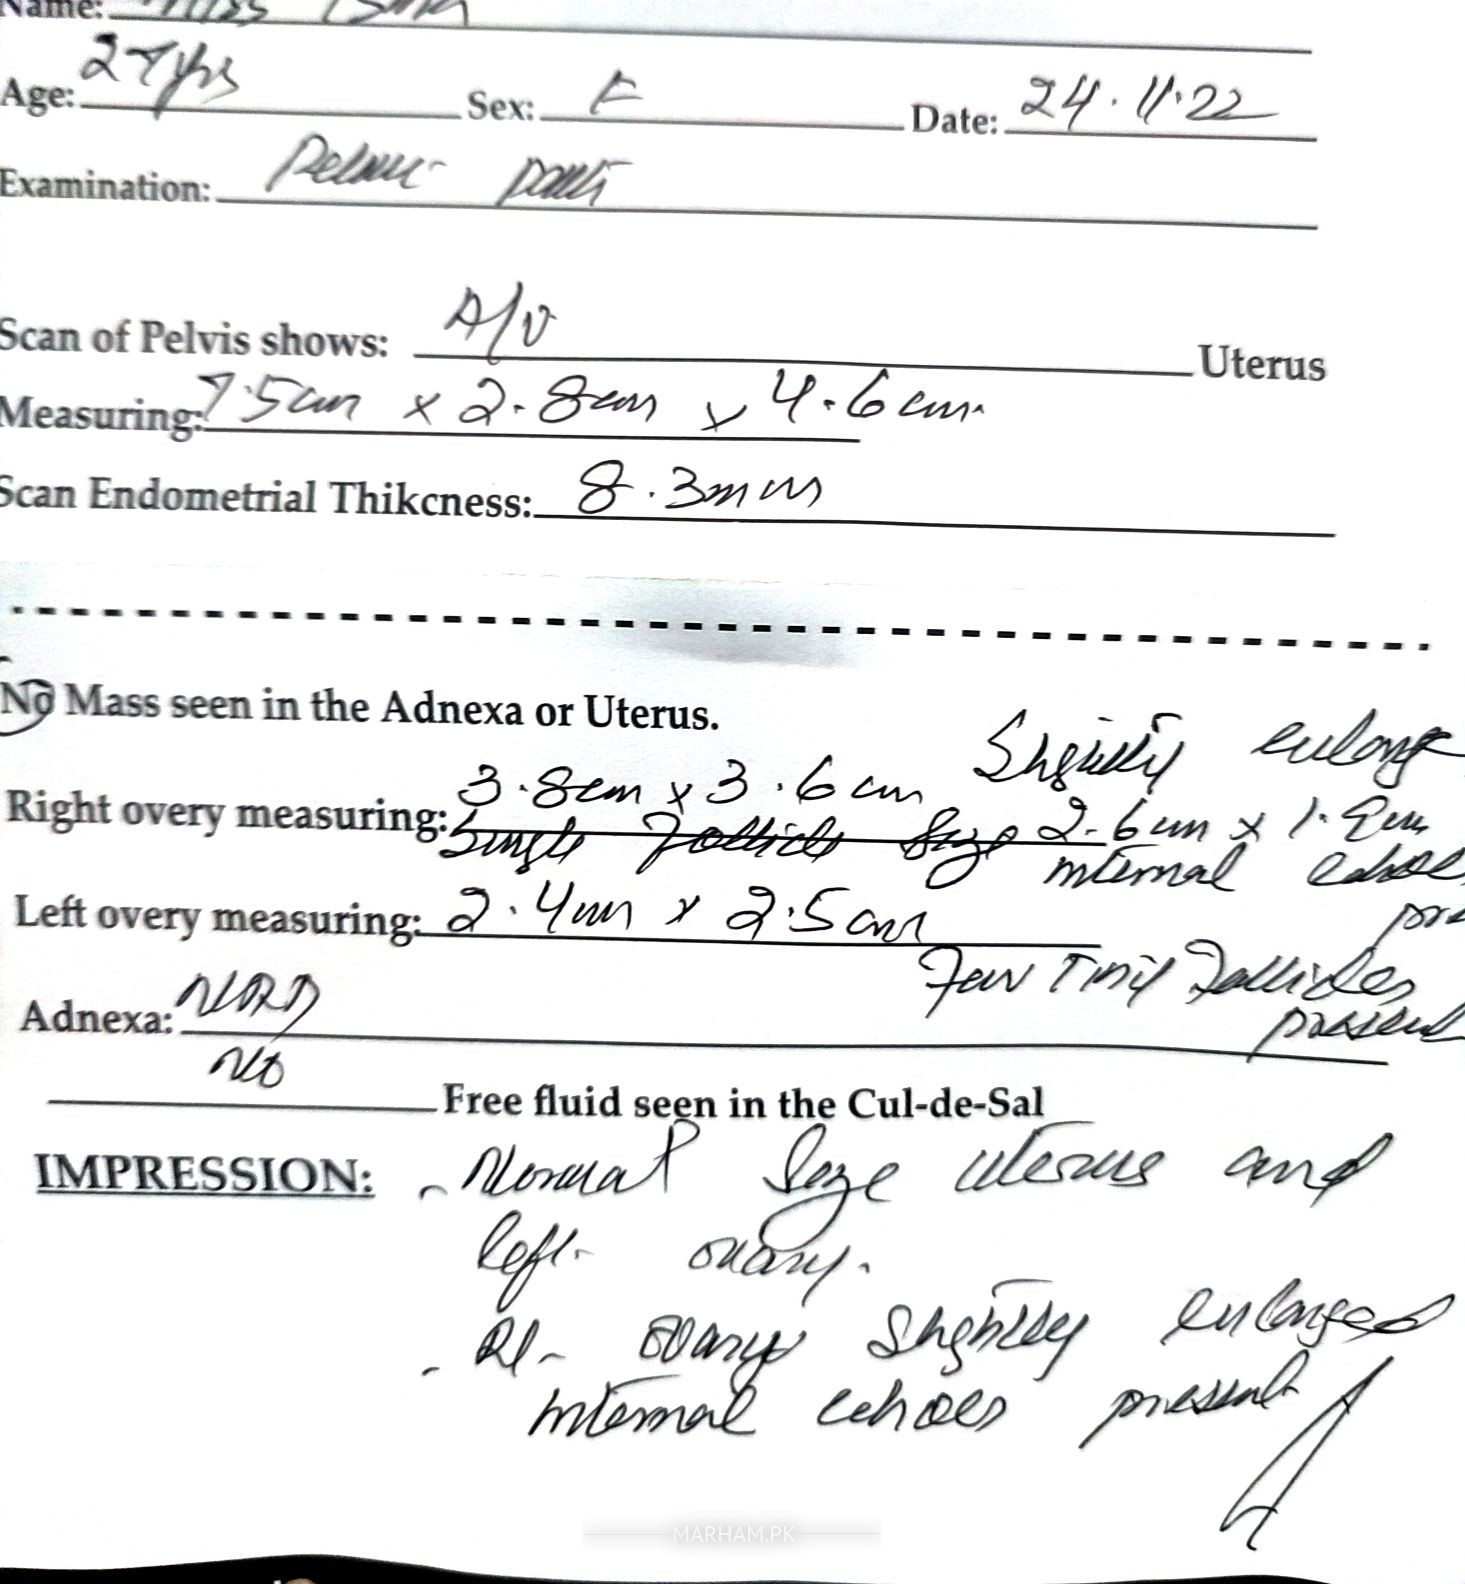 Name: Miss
Age: 27yrs Sex: F Date: 24.11.22
Examination: Pelvic
Scan of Pelvis shows: A/V Uterus
Measuring: 7.5cm x 2.8cm x 4.6cm.
Scan Endometrial Thikcness: 8.3mm
No Mass seen in the Adnexa or Uterus.
Slightly enlarge
Right overy measuring: 3.8cm x 3.6cm
Single Follicle Size 2.6cm x 1.9cm
internal echoes
pre
Left overy measuring: 2.4cm x 2.5cm
Few Tiny Follicles
present
Adnexa: NAD
NO Free fluid seen in the Cul-de-Sal
IMPRESSION: - Normal Size uterus and
left ovary.
- Rt- ovary slightly enlarged
internal echoes present
MARHAM.PK